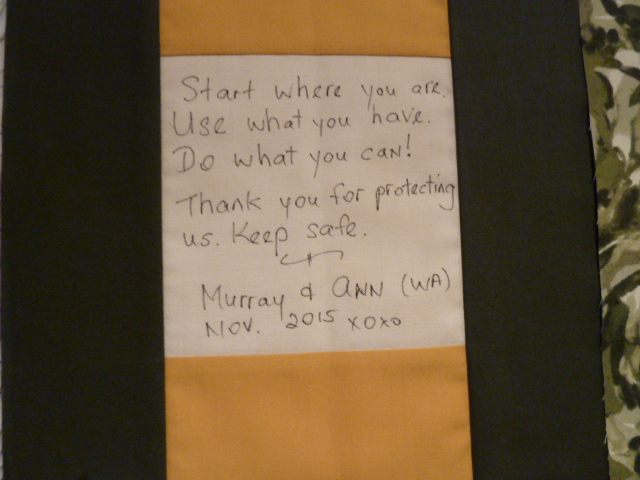 Start where you are.
Use what you have.
Do what you can!
Thank you for protecting
us. Keep safe.
Murray & Ann (WA)
Nov. 2015 xoxo